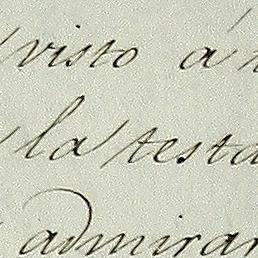 visto á
la testa
admirar